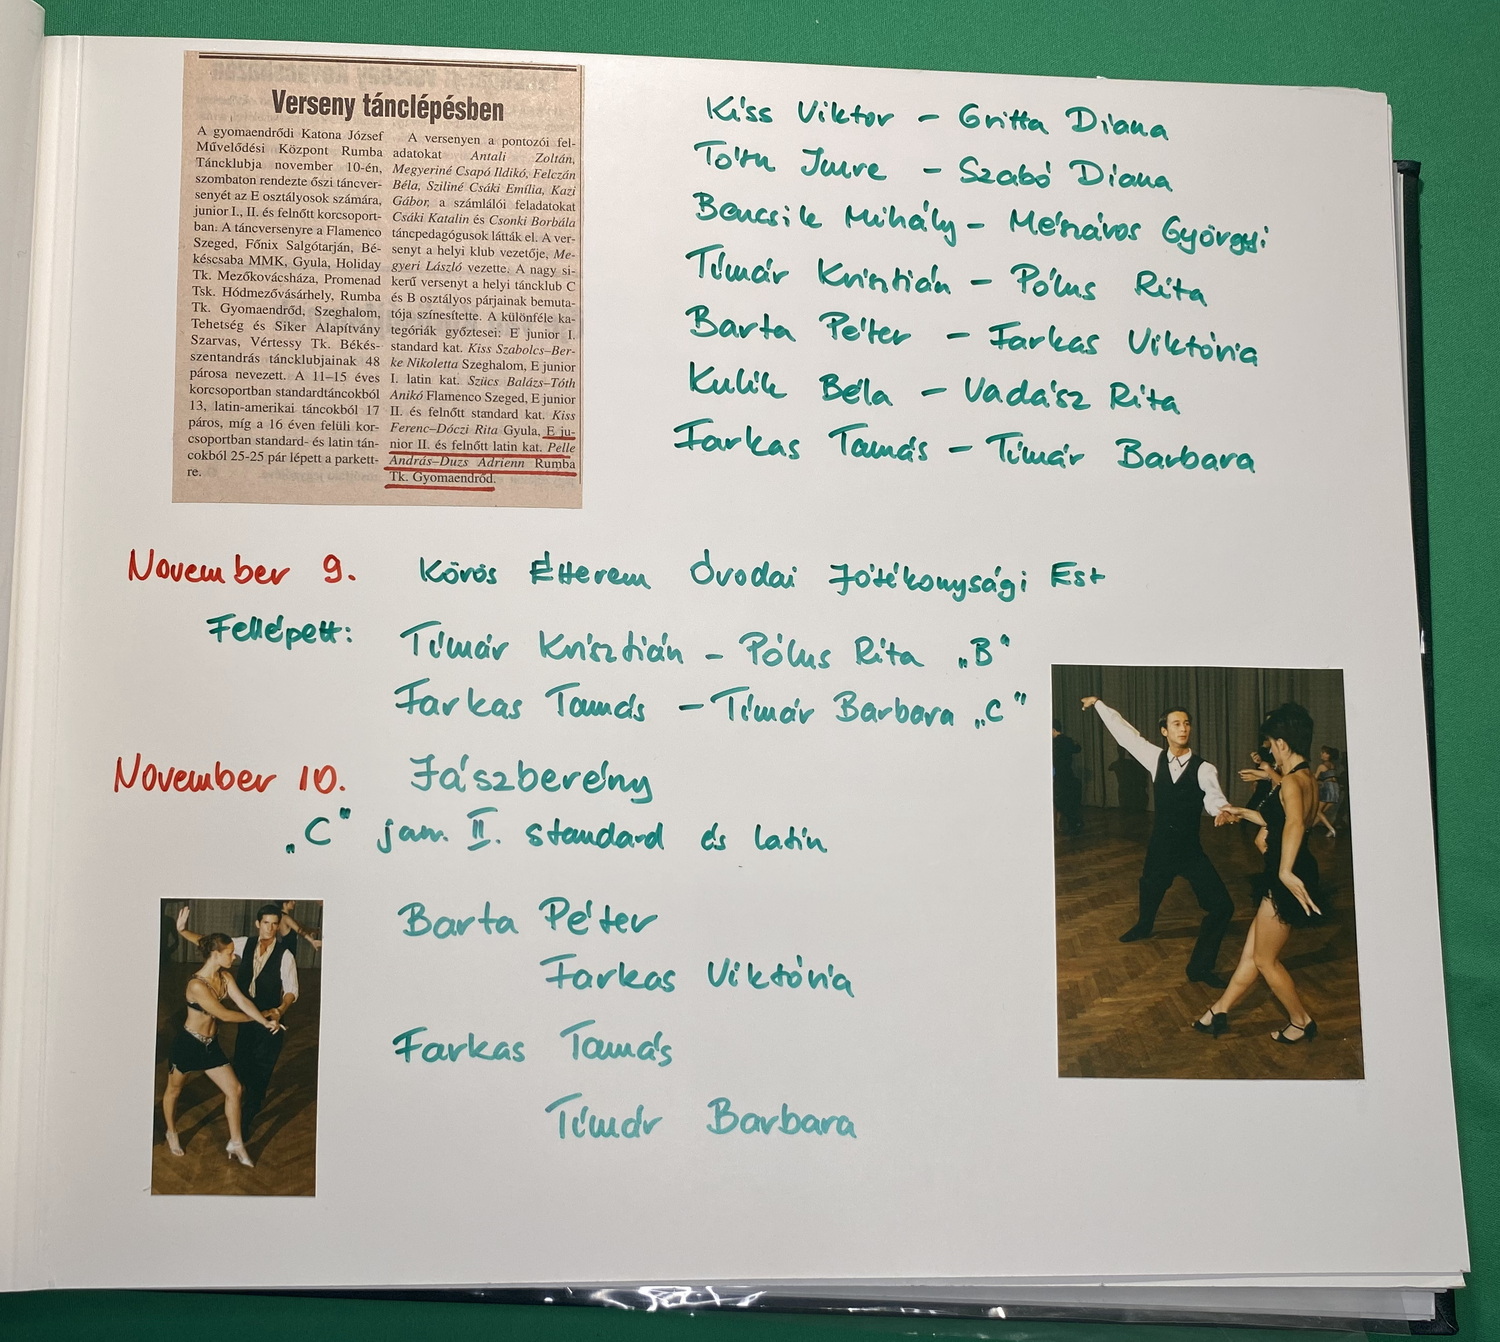 Verseny tánclépésben
A gyomaendrődi Katona József
Művelődési Központ Rumba
Táncklubja november 10-én,
szombaton rendezte őszi táncver-
senyét az E osztályosok számára,
junior I., II. és felnőtt korcsoport-
ban. A táncversenyre a Flamenco
Szeged, Főnix Salgótarján, Bé-
késcsaba MMK, Gyula, Holiday
Tk. Mezőkovácsháza, Promenad
Tsk. Hódmezővásárhely, Rumba
Tk. Gyomaendrőd, Szeghalom,
Tehetség és Siker Alapítvány
Szarvas, Vértessy Tk. Békés-
szentandrás táncklubjainak 48
párosa nevezett. A 11–15 éves
korcsoportban standardtáncokból
13, latin-amerikai táncokból 17
páros, míg a 16 éven felüli kor-
csoportban standard- és latin tán-
cokból 25-25 pár lépett a parkett-
re.
A versenyen a pontozói fel-
adatokat Antali Zoltán,
Megyeriné Csapó Ildikó, Felczán
Béla, Sziliné Csáki Emília, Kazi
Gábor, a számlálói feladatokat
Csáki Katalin és Csonki Borbála
táncpedagógusok látták el. A ver-
senyt a helyi klub vezetője, Me-
gyeri László vezette. A nagy si-
kerű versenyt a helyi táncklub C
és B osztályos párjainak bemuta-
tója színesítette. A különféle ka-
tegóriák győztesei: E junior I.
standard kat. Kiss Szabolcs–Ber-
ke Nikoletta Szeghalom, E junior
I. latin kat. Szücs Balázs–Tóth
Anikó Flamenco Szeged, E junior
II. és felnőtt standard kat. Kiss
Ferenc–Dóczi Rita Gyula, E ju-
nior II. és felnőtt latin kat. Pelle
András–Duzs Adrienn Rumba
Tk. Gyomaendrőd.
Kiss Viktor – Gritta Diana
Tóth Imre – Szabó Diana
Bencsik Mihály – Mészáros Györgyi
Tímár Krisztián – Pólus Rita
Barta Péter – Farkas Viktória
Kulik Béla – Vadász Rita
Farkas Tamás – Tímár Barbara
November 9. Körös Étterem Óvodai Jótékonysági Est
Fellépett: Tímár Krisztián – Pólus Rita „B"
Farkas Tamás – Tímár Barbara „C"
November 10. Jászberény
„C" jun. II. standard és latin
Barta Péter
Farkas Viktória
Farkas Tamás
Tímár Barbara